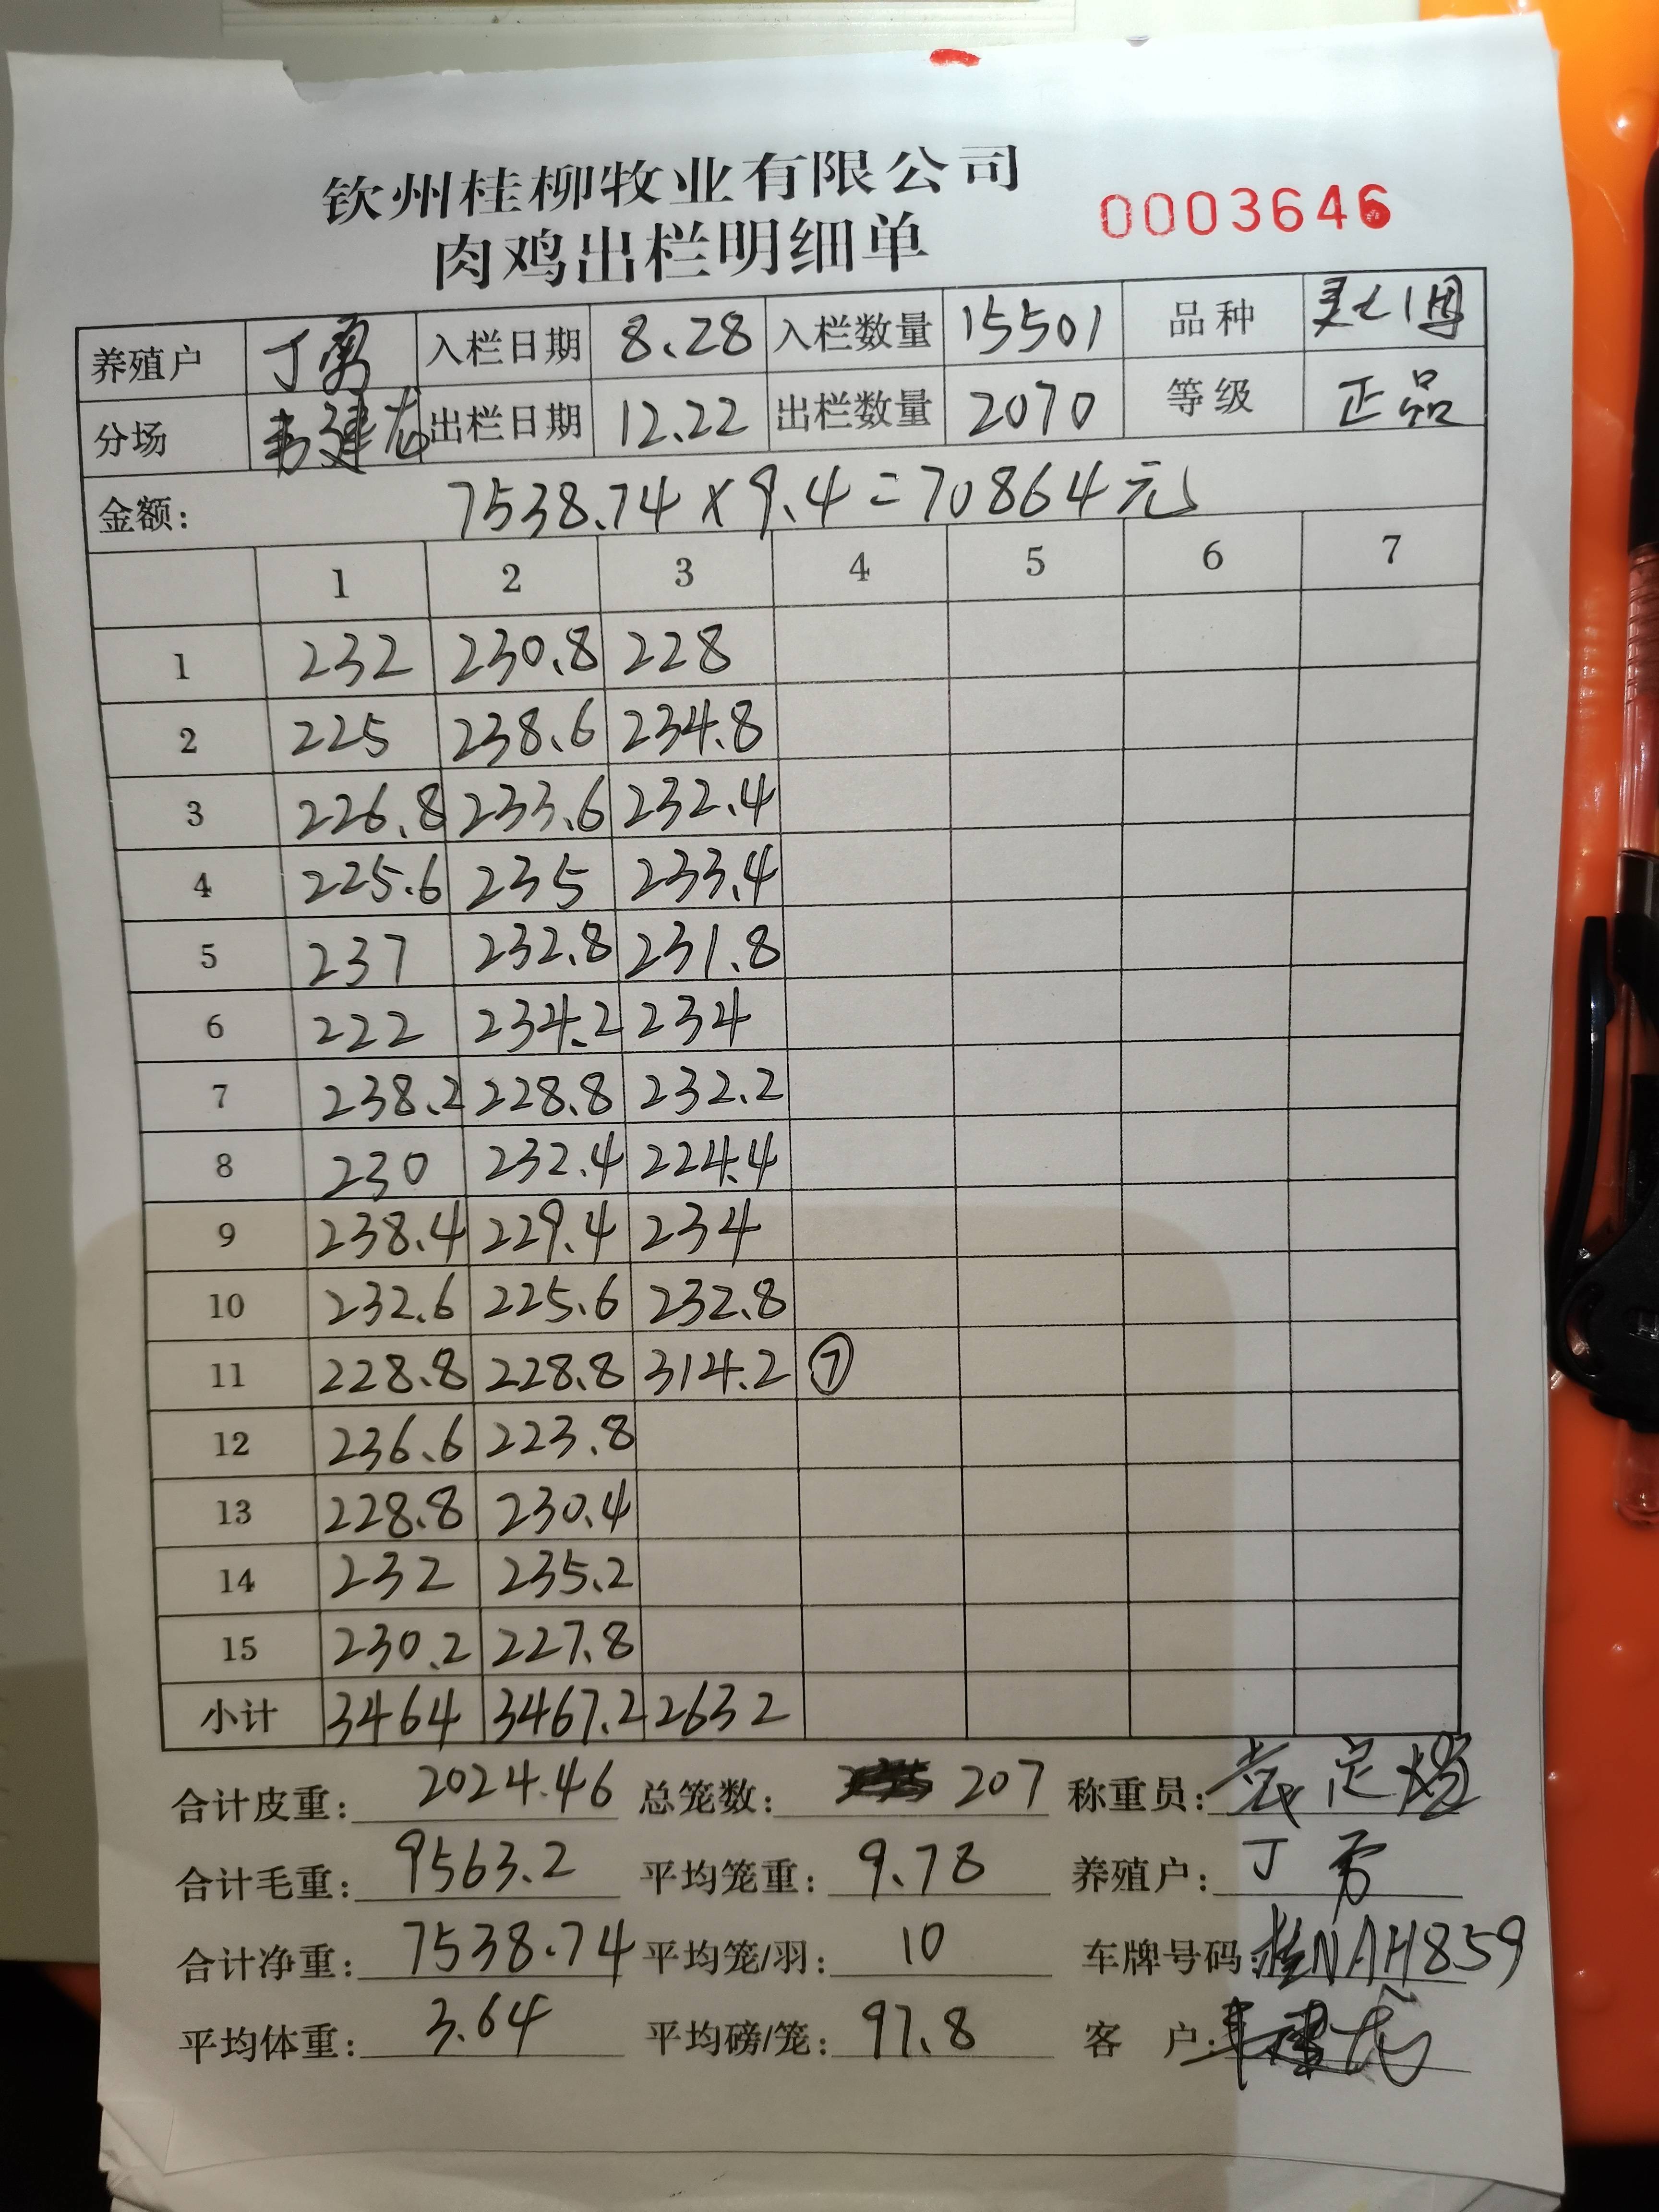 钦州桂柳牧业有限公司
肉鸡出栏明细单 0003646
养殖户 丁勇 入栏日期 8.28 入栏数量 15501 品种
分场 韦建龙 出栏日期 12.22 出栏数量 2070 等级 正品
金额: 7538.74×9.4=70864元
1 2 3 4 5 6 7
1 232 230.8 228
2 225 238.6 234.8
3 226.8 233.6 232.4
4 225.6 235 233.4
5 237 232.8 231.8
6 222 234.2 234
7 238.2 228.8 232.2
8 230 232.4 224.4
9 238.4 229.4 234
10 232.6 225.6 232.8
11 228.8 228.8 314.2 ⑦
12 236.6 223.8
13 228.8 230.4
14 232 235.2
15 230.2 227.8
小计 3464 3467.2 2632
合计皮重: 2024.46 总笼数: 207 称重员:
合计毛重: 9563.2 平均笼重: 9.78 养殖户: 丁勇
合计净重: 7538.74 平均笼/羽: 10 车牌号码: 桂NAH859
平均体重: 3.64 平均磅/笼: 97.8 客户: 韦建龙